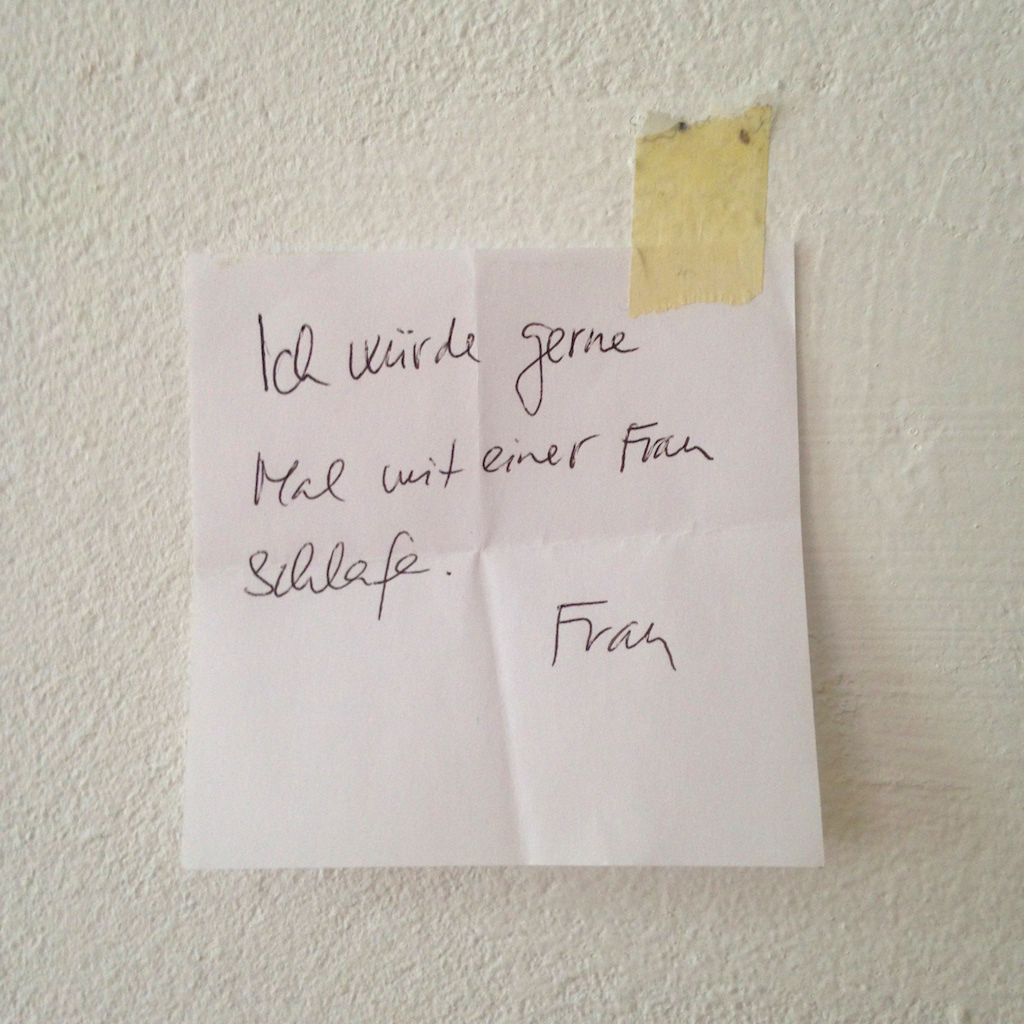 Ich würde gerne
Mal mit einer Frau
schlafe.
Frau